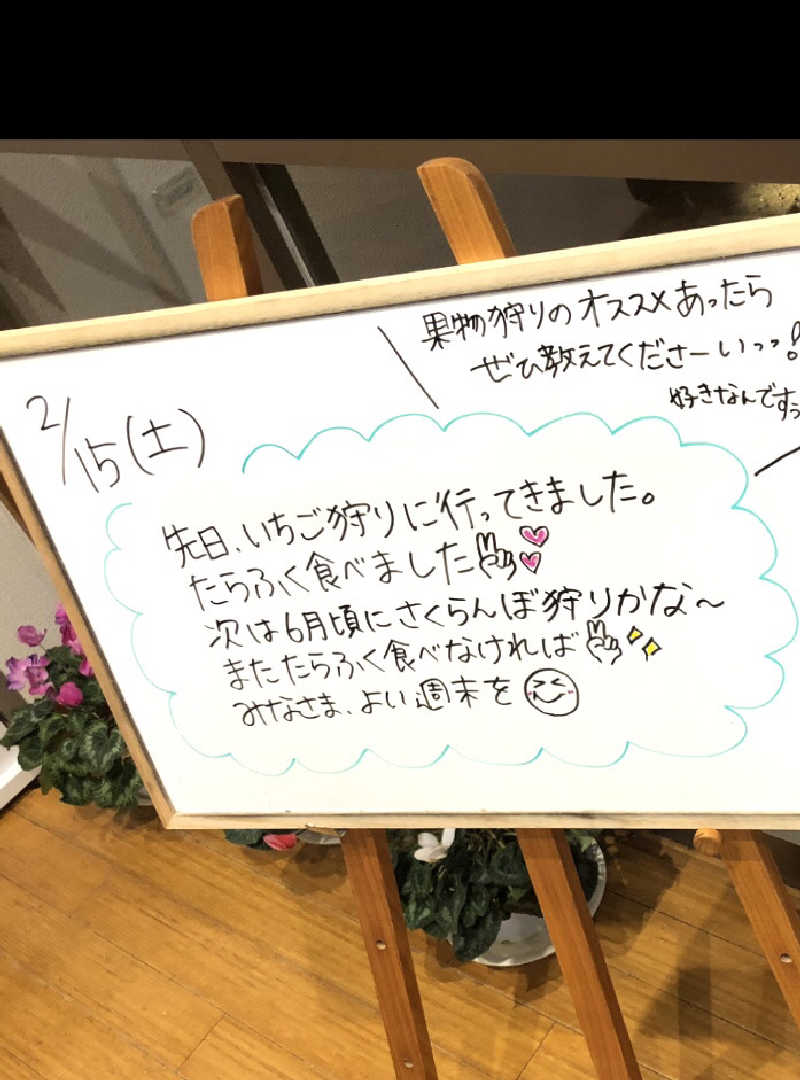 果物狩りのオススメあったら
ぜひ教えてくださーいっっ!
好きなんですぅ
2/15(土)
先日、いちご狩りに行ってきました。
たらふく食べました✌💕
次は6月頃にさくらんぼ狩りかな〜
またたらふく食べなければ✌✨
みなさま、よい週末を